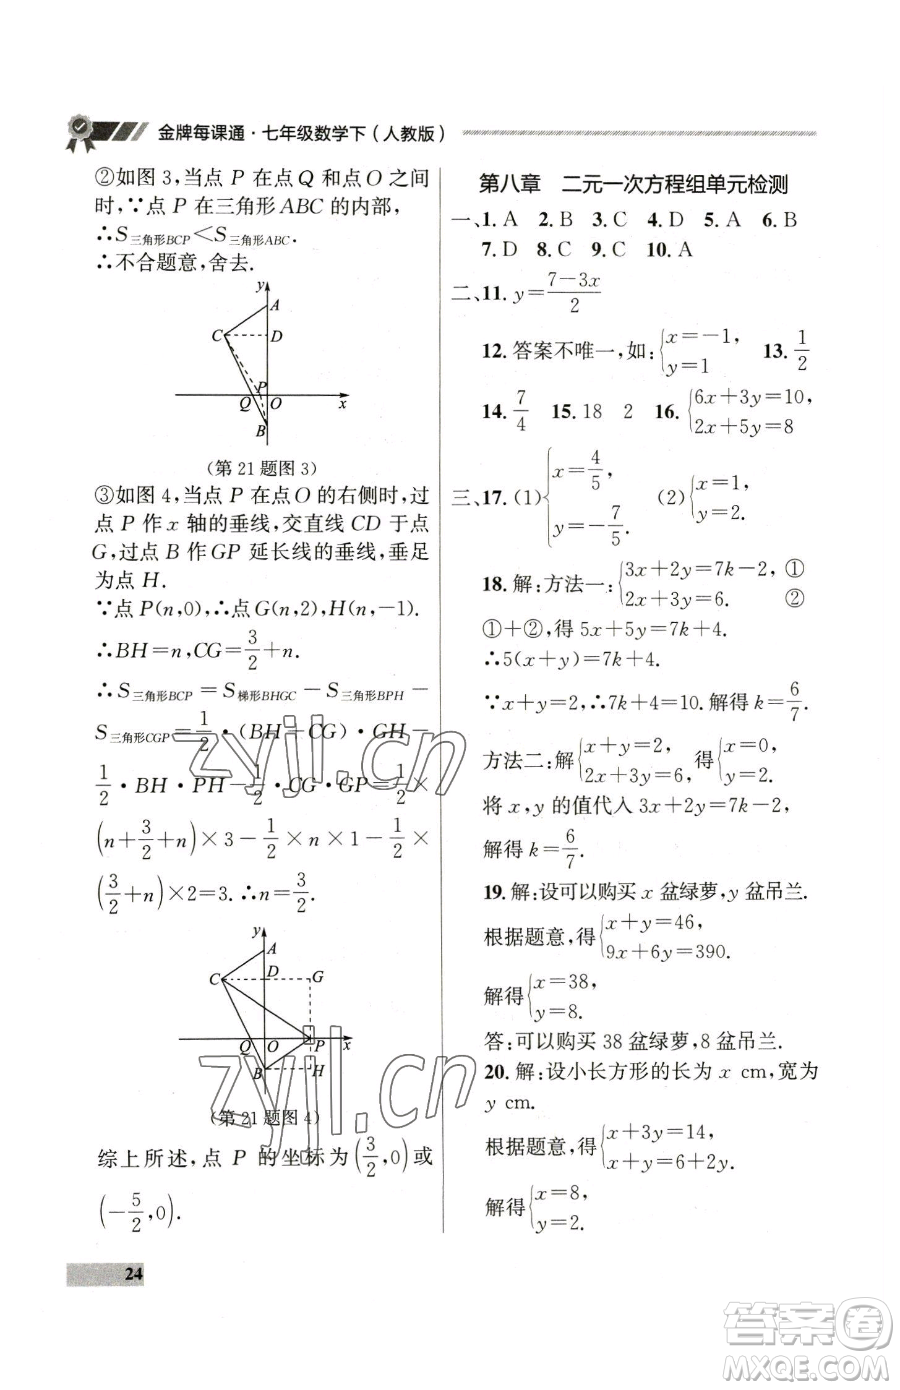 金牌每课通·七年级数学下(人教版)
②如图3,当点 P 在点 Q 和点 O 之间
时,∵点 P 在三角形 ABC 的内部,
∴S三角形BCP<S三角形ABC.
∴不合题意,舍去.
y
A
C
D
P
Q
O
x
B
(第21题图3)
③如图4,当点 P 在点 O 的右侧时,过
点 P 作 x 轴的垂线,交直线 CD 于点
G,过点 B 作 GP 延长线的垂线,垂足
为点 H.
∵点 P(n,0),∴点 G(n,2),H(n,-1).
∴BH=n,CG=3/2+n.
∴S三角形BCP=S梯形BHGC-S三角形BPH-
S三角形CGP=1/2·(BH+CG)·GH-
1/2·BH·PH-1/2·CG·GP=1/2×
(n+3/2+n)×3-1/2×n×1-1/2×
(3/2+n)×2=3.∴n=3/2.
y
A
C
D
G
Q
O
P
x
B
H
(第21题图4)
综上所述,点 P 的坐标为(3/2,0)或
(-5/2,0).
24
第八章 二元一次方程组单元检测
一、1. A 2. B 3. C 4. D 5. A 6. B
7. D 8. C 9. C 10. A
二、11. y=(7-3x)/2
12. 答案不唯一,如:{x=-1, y=1 13. 1/2
14. 7/4 15. 18 2 16. {6x+3y=10, 2x+5y=8
三、17. (1){x=4/5, y=-7/5. (2){x=1, y=2.
18. 解:方法一:{3x+2y=7k-2, ① 2x+3y=6. ②
①+②,得 5x+5y=7k+4.
∴5(x+y)=7k+4.
∵x+y=2,∴7k+4=10. 解得 k=6/7.
方法二:解{x+y=2, 2x+3y=6, 得{x=0, y=2.
将 x,y 的值代入 3x+2y=7k-2,
解得 k=6/7.
19. 解:设可以购买 x 盆绿萝,y 盆吊兰.
根据题意,得{x+y=46, 9x+6y=390.
解得{x=38, y=8.
答:可以购买 38 盆绿萝,8 盆吊兰.
20. 解:设小长方形的长为 x cm,宽为
y cm.
根据题意,得{x+3y=14, x+y=6+2y.
解得{x=8, y=2.
zyjl.cn
zyjl.cn
答案圈
MXQE.COM